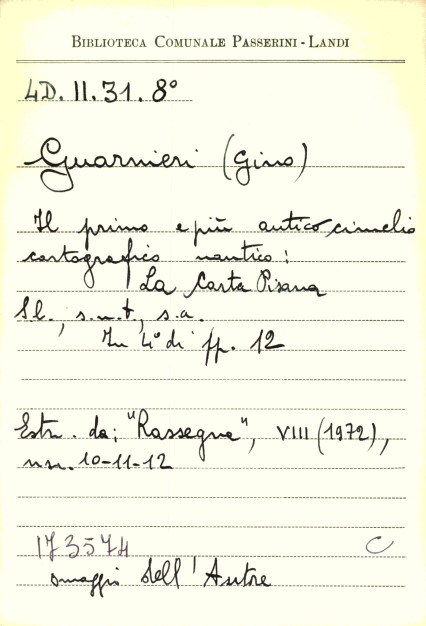 BIBLIOTECA COMUNALE PASSERINI - LANDI
4D. II. 31. 8°
Guarnieri (Gino)
Il primo e più antico cimelio
cartografico nautico:
La Carta Pisana
S.l., s.n.t., s.a.
In 4° di pp. 12
Estr. da: "Rassegna", VIII (1972),
nn. 10-11-12
173574 C
omaggio dell'Autore